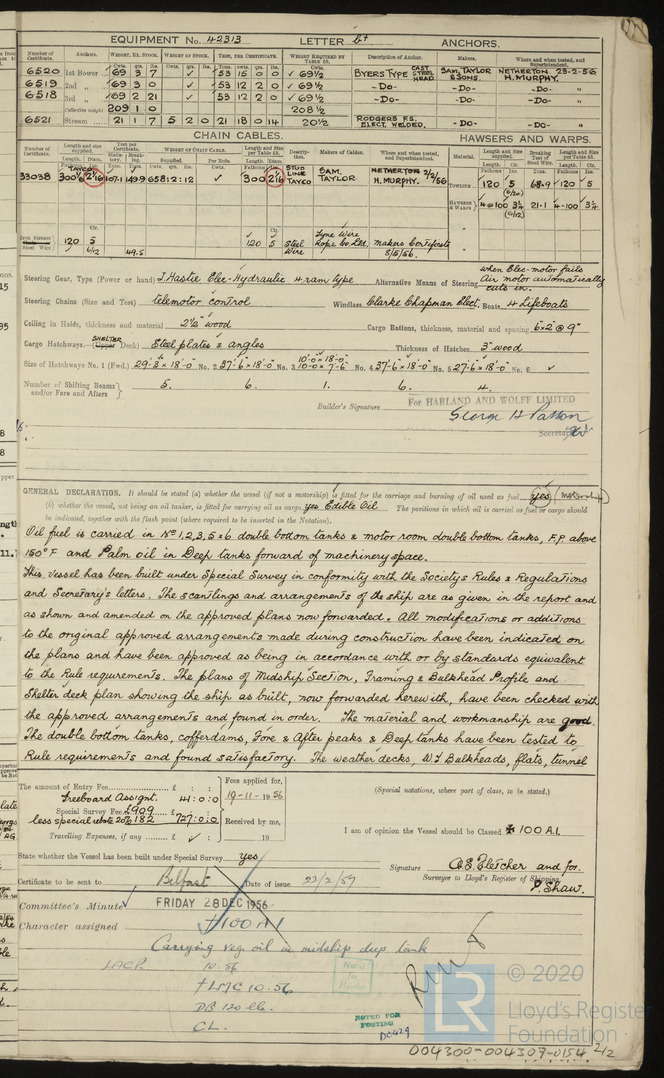 EQUIPMENT No. 42313 LETTER b† ANCHORS.
Number of Certificate. Anchors. WEIGHT, EX. STOCK. WEIGHT OF STOCK. TEST, PER CERTIFICATE. WEIGHT REQUIRED BY TABLE 53. Description of Anchor. Makers. Where and when tested, and Superintendent.
6520 1st Bower 69 3 7 ✓ 53 15 0 0 ✓ 69½ BYERS TYPE CAST STEEL HEAD SAML TAYLOR & SONS. NETHERTON 23-2-56 H. MURPHY.
6519 2nd " 69 3 0 ✓ 53 12 2 0 ✓ 69½ -Do- -Do- -Do-
6518 3rd " 69 2 21 ✓ 53 12 2 0 ✓ 69½ -Do- -Do- -Do-
Collective weight 209 1 0 208½
6521 Stream 21 1 7 5 2 0 21 18 0 14 20½ RODGERS F.S. ELECT. WELDED.
CHAIN CABLES. HAWSERS AND WARPS.
33038 300 2 1/16 107·1 149·9 658:2:12 ✓ 300 2 1/16 STUD LINK TAYCO SAML TAYLOR NETHERTON H. MURPHY. 2/2/56 TOWLINE 120 5 68·9 ✓ 120 5
(6/20)
HAWSERS & WARPS 4@100 3¼ 21·1 4-100 3¼
(6/12)
Steel Wire 120 5 6/12 49.5 120 5 Steel Wire Tyne Wire Rope Co Ltd. makers Certificate 5/5/56.
Steering Gear, Type (Power or hand) J. Hastie Elec-Hydraulic 4 ram type Alternative Means of Steering when Elec-motor fails Air motor automatically cuts in.
Steering Chains (Size and Test) telemotor control Windlass Clarke Chapman Elect. Boats 4 Lifeboats
Ceiling in Holds, thickness and material 2½" wood Cargo Battens, thickness, material and spacing 6×2 @ 9"
Cargo Hatchways. (SHELTER Upper Deck) Steel plates & angles Thickness of Hatches 3" wood
Size of Hatchways No. 1 (Fwd.) 29'-3"×18'-0" No. 2 37'-6"×18'-0" No. 3 10'-0"×18'-0" 10'-0"×7'-6" No. 4 37'-6"×18'-0" No. 5 27'-6"×18'-0" No. 6 ✓
Number of Shifting Beams and/or Fore and Afters } 5. 6. 1. 6. 4.
Builder's Signature For HARLAND AND WOLFF LIMITED
Secretary
GENERAL DECLARATION. It should be stated (a) whether the vessel (if not a motorship) is fitted for the carriage and burning of oil used as fuel yes (motorship)
(b) whether the vessel, not being an oil tanker, is fitted for carrying oil as cargo yes Edible Oil The positions in which oil is carried as fuel or cargo should
be indicated, together with the flash point (where required to be inserted in the Notation).
Oil fuel is carried in Nos 1, 2, 3, 5 & 6 double bottom tanks & motor room double bottom tanks, F.P. above
150°F and Palm oil in Deep tanks forward of machinery space.
This vessel has been built under Special Survey in conformity with the Society's Rules & Regulations
and Secretary's letters. The scantlings and arrangements of the ship are as given in the report and
as shown and amended on the approved plans now forwarded. All modifications or additions
to the original approved arrangements made during construction have been indicated on
the plans and have been approved as being in accordance with or by standards equivalent
to the Rule requirements. The plans of Midship Section, Framing & Bulkhead Profile and
Shelter deck plan showing the ship as built, now forwarded herewith, have been checked with
the approved arrangements and found in order. The material and workmanship are good
The double bottom tanks, cofferdams, Fore & After peaks & Deep tanks have been tested to
Rule requirements and found satisfactory. The weather decks, W.T Bulkheads, flats, tunnel
The amount of Entry Fee £ : : Fees applied for,
Freeboard Assignt. 41:0:0 19-11-1956
Special Survey Fee £909
less special rebate 20% 182 727:0:0 Received by me,
Travelling Expenses, if any £ ✓ : 19
(Special notations, where part of class, to be stated.)
I am of opinion the Vessel should be Classed ✠ 100 A.1.
State whether the Vessel has been built under Special Survey yes
Signature A.E. Fletcher and for
Surveyor to Lloyd's Register of Shipping. P. Shaw.
Certificate to be sent to Belfast Date of issue 22/2/57
Committee's Minute FRIDAY 28 DEC 1956
Character assigned +100 A1
Carrying veg. oil in midship deep tank
LACP 10.56
+LMC 10.56
DB 120 lb.
CL.
NOTED FOR POSTING
© 2020
LR
Lloyd's Register
Foundation
004300-004307-0154 2/2